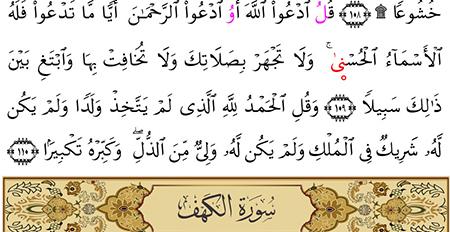 خُشُوعًا ۩ ﴿١٠٨﴾ قُلُ ٱدۡعُواْ ٱللَّهَ أَوُ ٱدۡعُواْ ٱلرَّحۡمَٰنَ أَيًّا مَّا تَدۡعُواْ فَلَهُ
ٱلۡأَسۡمَآءُ ٱلۡحُسۡنٜىٰۚ وَلَا تَجۡهَرۡ بِصَلَاتِكَ وَلَا تُخَافِتۡ بِهَا وَٱبۡتَغِ بَيۡنَ
ذَٰلِكَ سَبِيلًا ﴿١٠٩﴾ وَقُلِ ٱلۡحَمۡدُ لِلَّهِ ٱلَّذِى لَمۡ يَتَّخِذۡ وَلَدًا وَلَمۡ يَكُن
لَّهُۥ شَرِيكٌ فِى ٱلۡمُلۡكِ وَلَمۡ يَكُن لَّهُۥ وَلِىٌّ مِّنَ ٱلذُّلِّۖ وَكَبِّرۡهُ تَكۡبِيرًا ﴿١١٠﴾
سُورَةُ الكَهْفِ